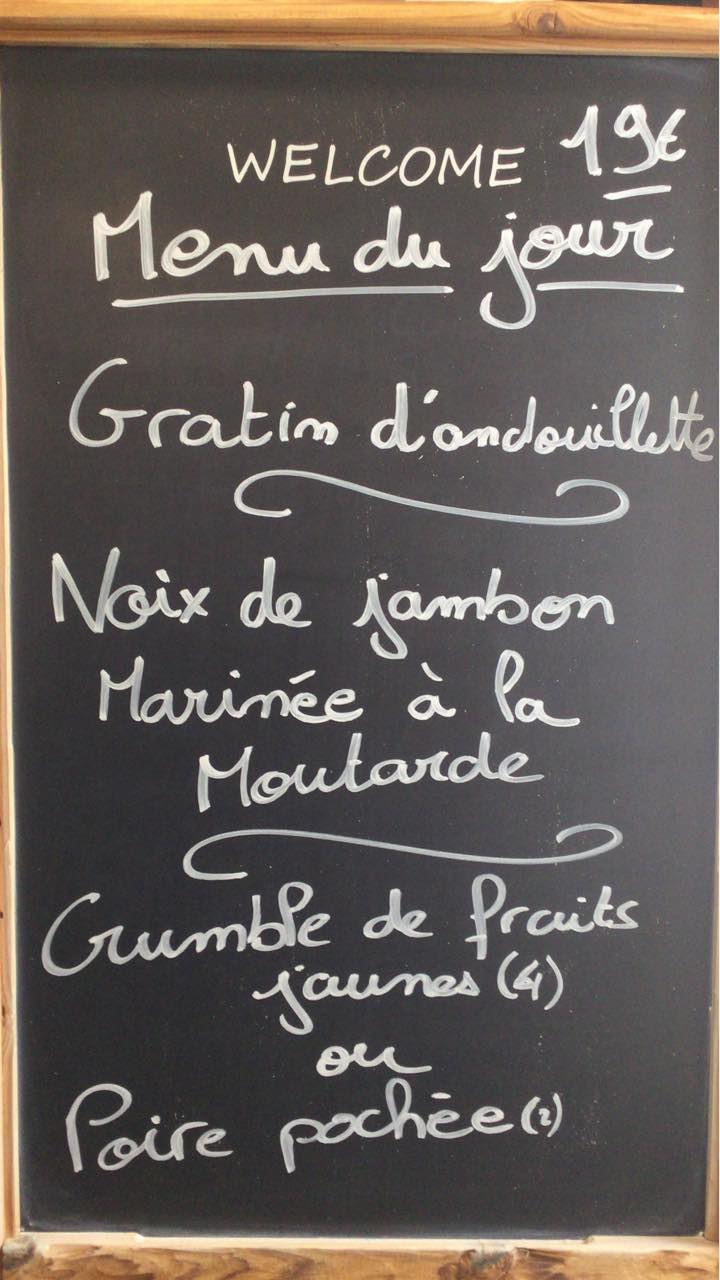 WELCOME 19€
Menu du jour
Gratin d'andouillette
Noix de jambon
Marinée à la
Moutarde
Crumble de fruits
jaunes (4)
ou
Poire pochée (2)